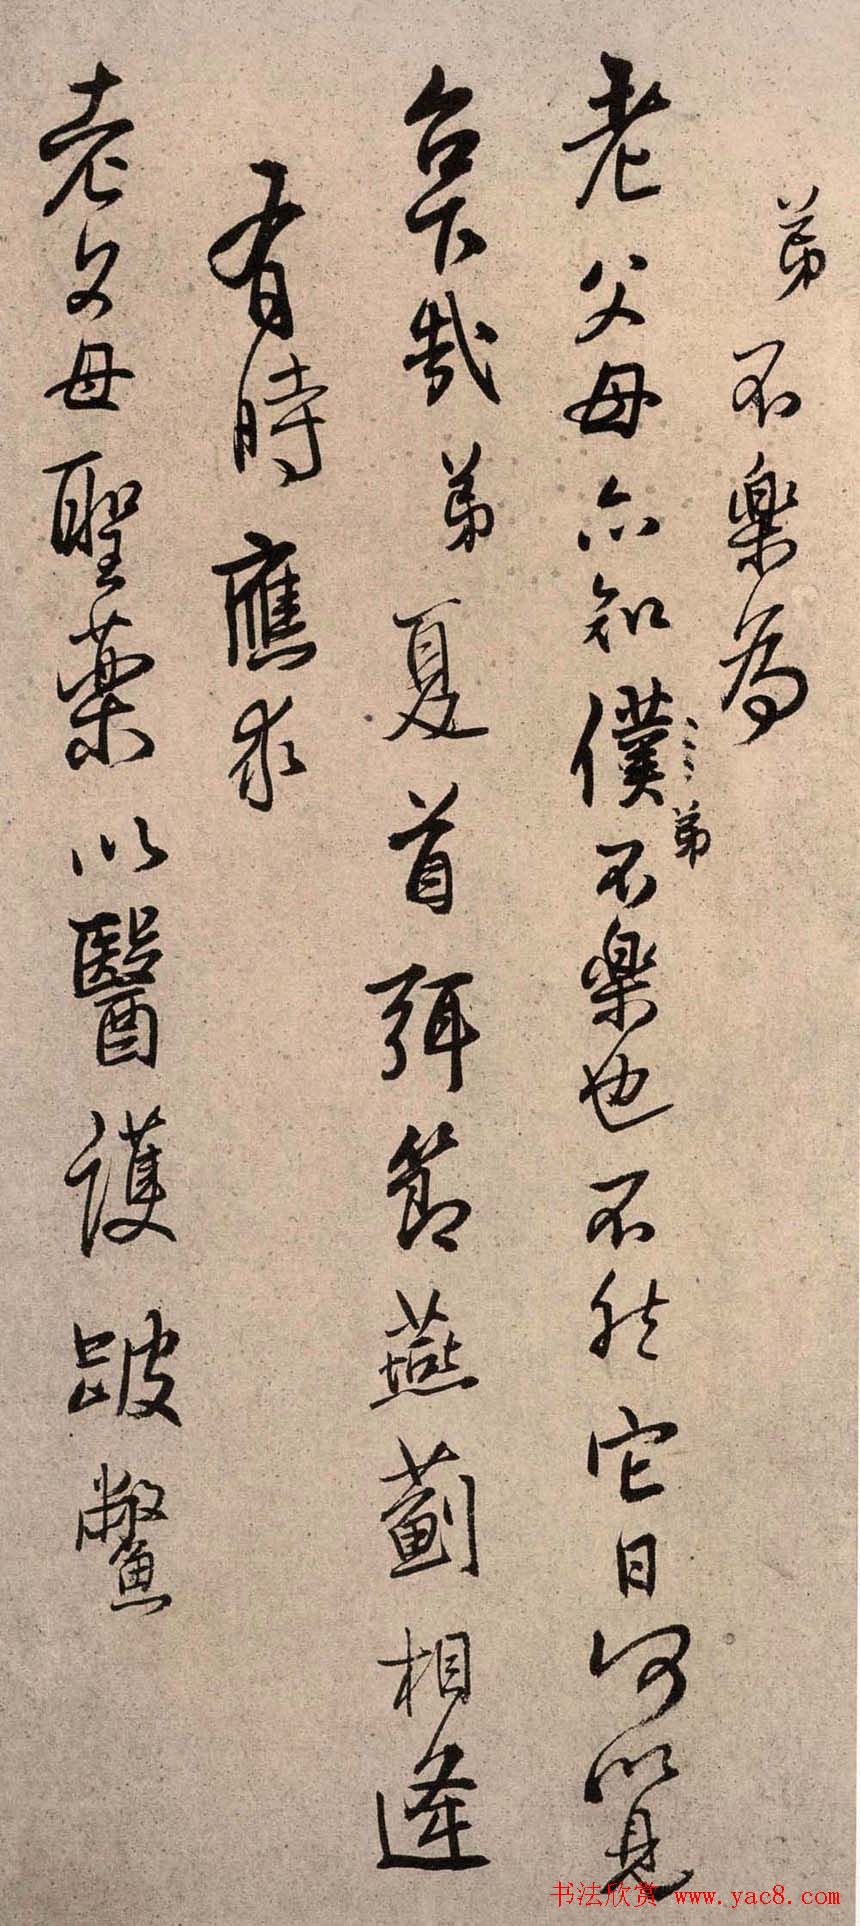 弟不樂為
老父母亦知僕弟不樂也不然它日何以見
台下哉弟夏首弭節燕薊相逢
有時應求
老父母聖藥以醫護跛鱉
书法欣赏 www.yac8.com